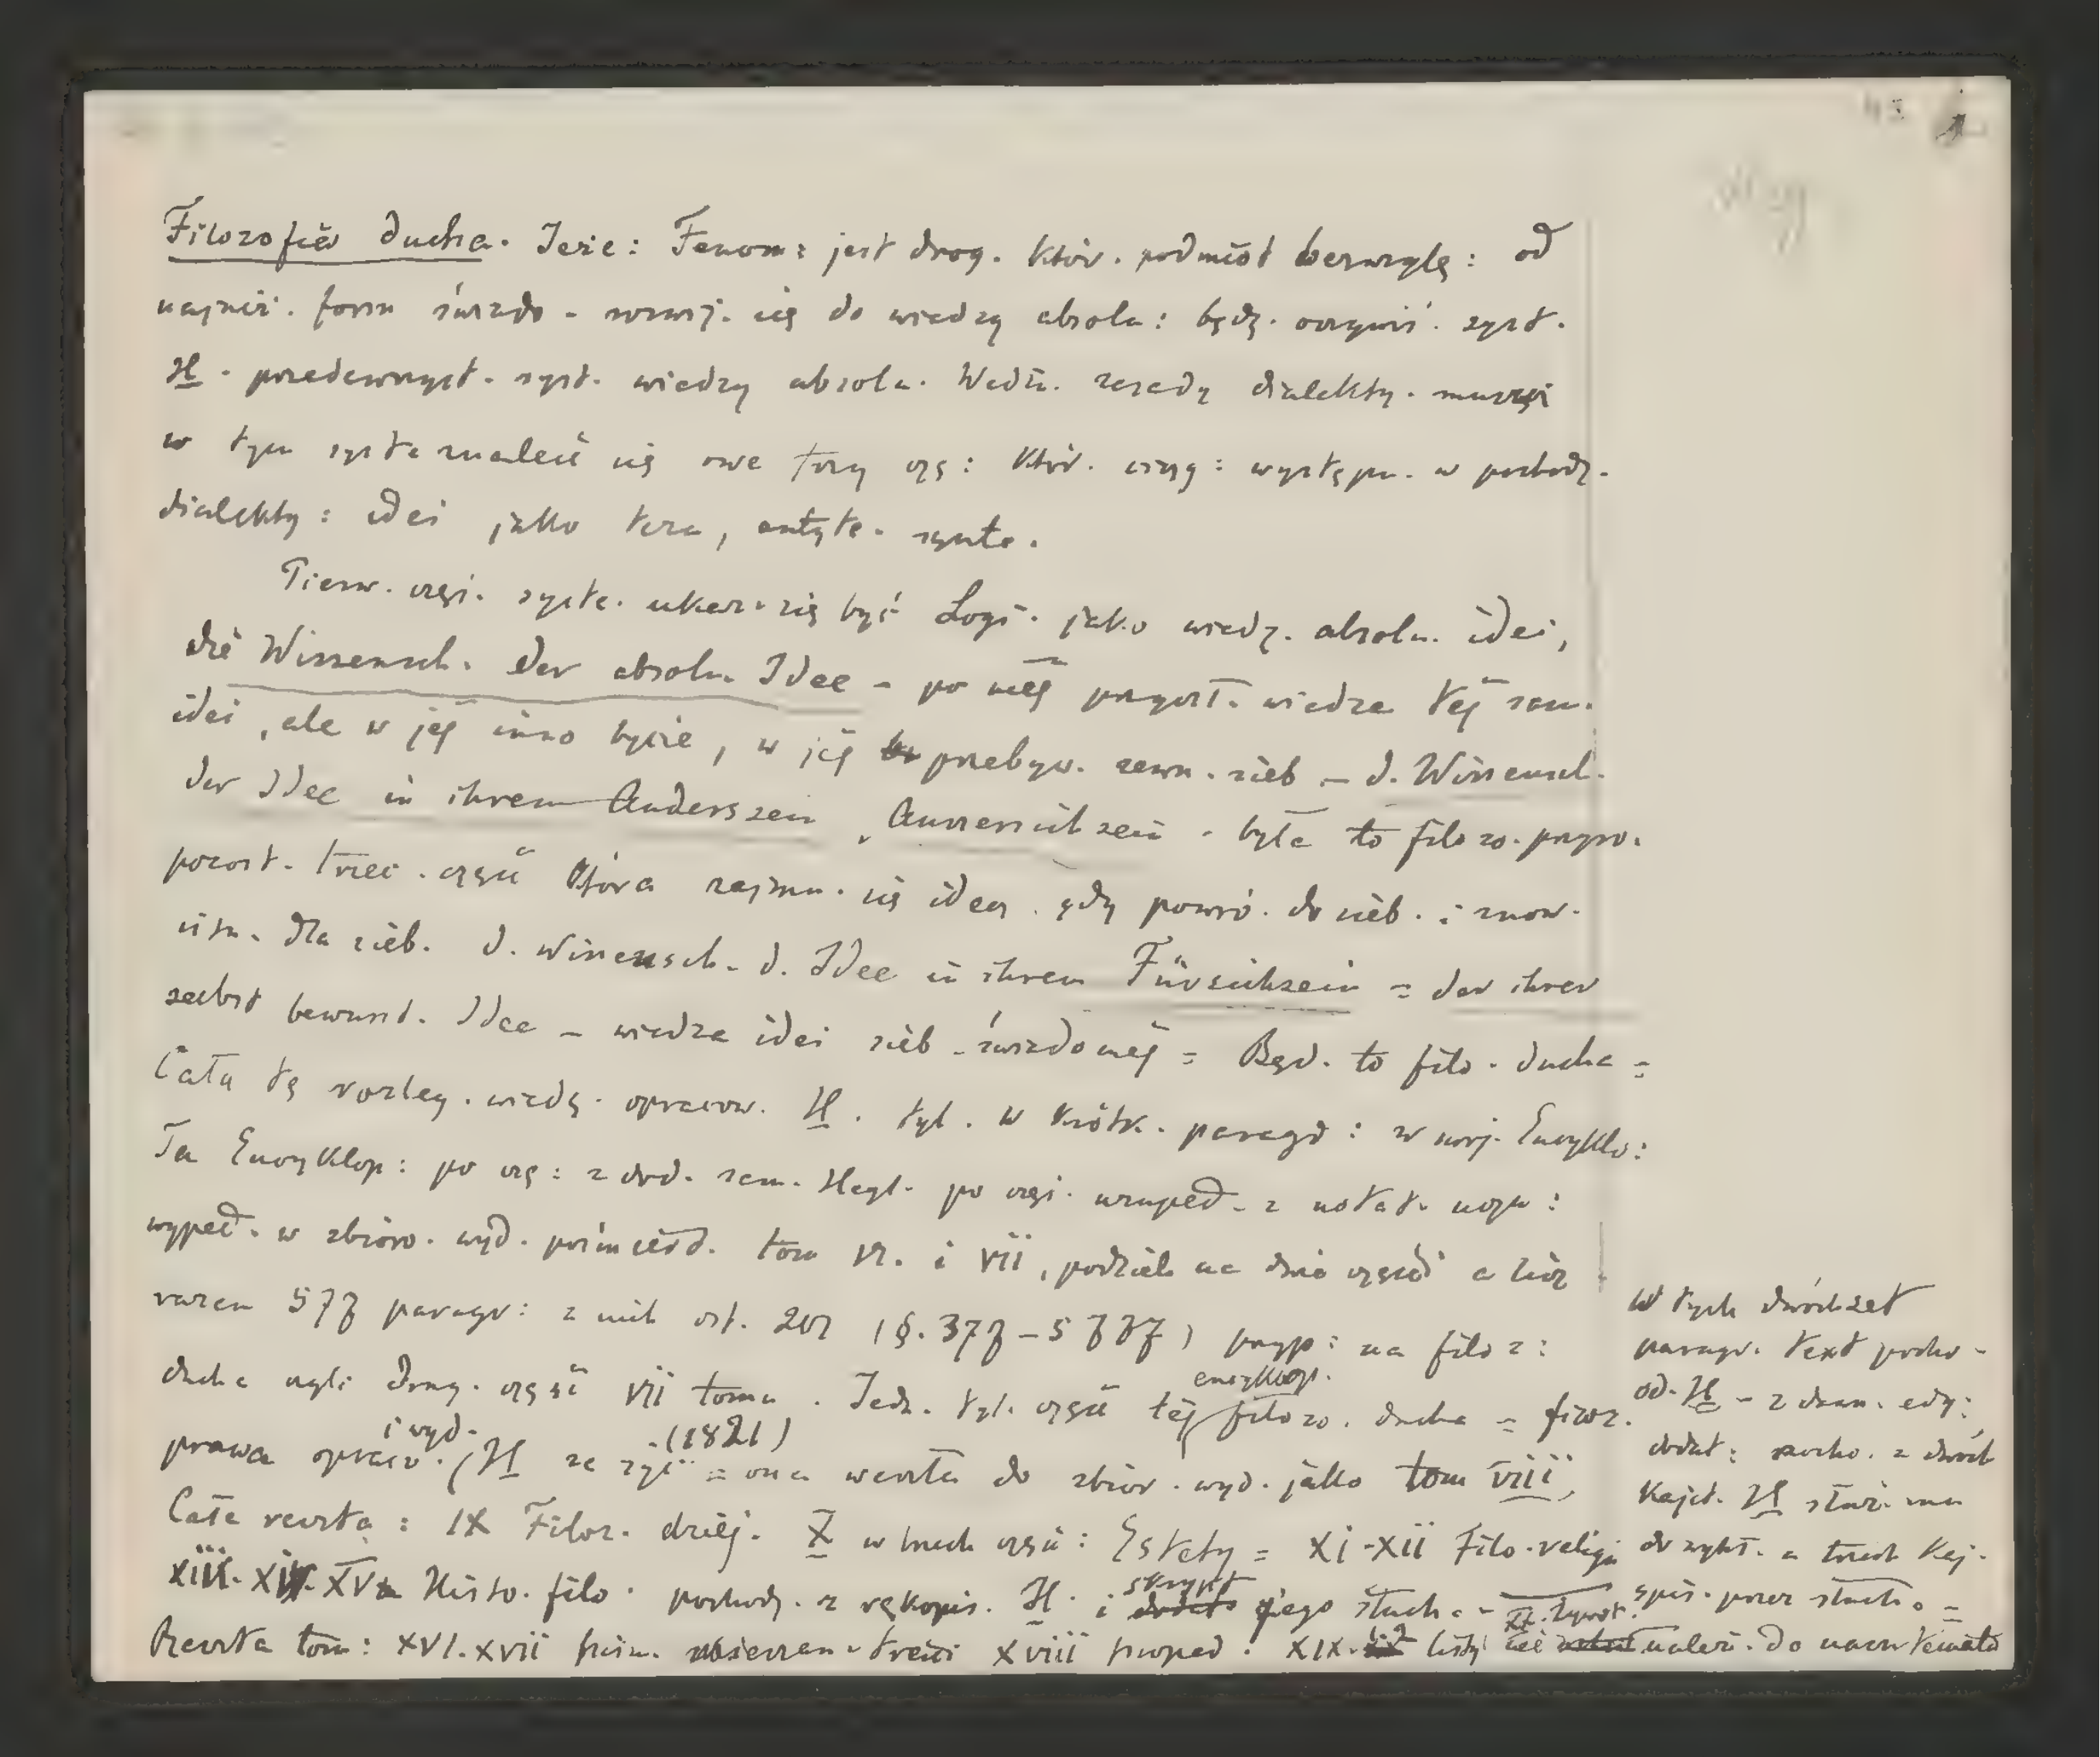 Filozofia ducha. Jeże: Fenom: jest drog. któr. podmiot bezwzglę: od
najniż. form świado. rozwij. się do wiedzy absolu: będz. oczywiś. syst.
H. przedewszyst. syst. wiedzy absolu. Wedłu. zasady dialekty. muszą
w tym syste. znaleść się owe trzy czę: któr. występu. w pochodz.
dialekty: idei jako teza, antyte. synte.
Pierw. częś. syste. ukaz. się być Logi. jako wiedz. absolu. idei,
die Wissensch. der absolu. Idee - po niej przyszł. wiedza tej sam.
idei, ale w jej inno bycie, w jej przebyw. zewn. sieb - d. Wissensch.
der Idee in ihrem Anderssein, Aussersichsein - była to filozo. przyro.
pozost. trzec. część która zajmu. się ideą gdy powró. do sieb. i znow.
istn. dla sieb. d. Wissensch. d. Idee in ihrem Fürsichsein = der ihrer
selbst bewusst. Idee - wiedza idei sieb. świadomej = Będ. to filo. ducha =
Całą tę rozleg. wiedz. opracow. H. tyl. w krótk. paragr: w swoj. Encyklo:
Ta Encyklop: po czę: z dod. sam. Hegl. po częś. uzupeł. z notat. uczn:
wypeł. w zbioro. wyd. pośmiert. tom VI. i VII, podziel. na dwie części a licz
razem 577 paragr: z nich ost. 201 (§. 377-577) przyp: na filoz:
ducha czyli drug. część VII tomu. Jedn. tyl. część tej encyklop. filozo. ducha = filoz.
prawa opraco. i wyd. H za życi. (1821) = ona weszła do zbior. wyd. jako tom VIII,
Cała reszta: IX Filoz. dziej. X w trzech częś: Estety = XI-XII Filo. religii
XIII. XIV. XV Histo. filo. pochodz. z rękopis. H. i skrypt jego słuch.
Reszta tom: XVI. XVII treści XVIII proped. XIX. listy należ. do nasz. tematu
W tych dwóchset
paragr. text pocho-
od. H - z daw. edy:
dodat: pocho. z dwóch
kajet. H służ. mu
do wykł. a trzech kaj.
spis. przez słuch. =